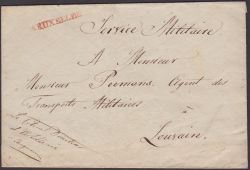 BRUXELLES
Service Militaire
A Monsieur
Monsieur Pumans, Agent des
Transports Militaires
à
Louvain.